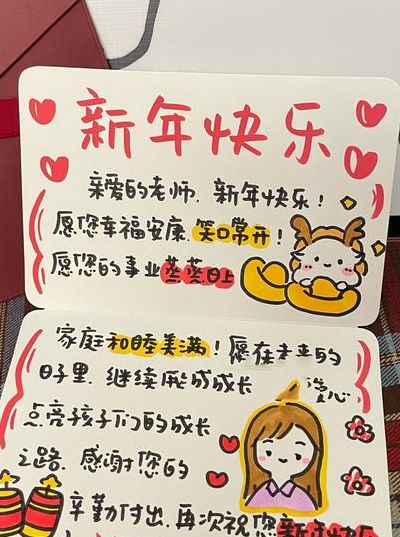 新年快乐
亲爱的老师，新年快乐！
愿您幸福安康，笑口常开！
愿您的事业蒸蒸日上
家庭和睦美满！愿在未来的
日子里，继续 成长
点亮孩子们的成长
之路，感谢您的
辛勤付出，再次祝您新年快乐